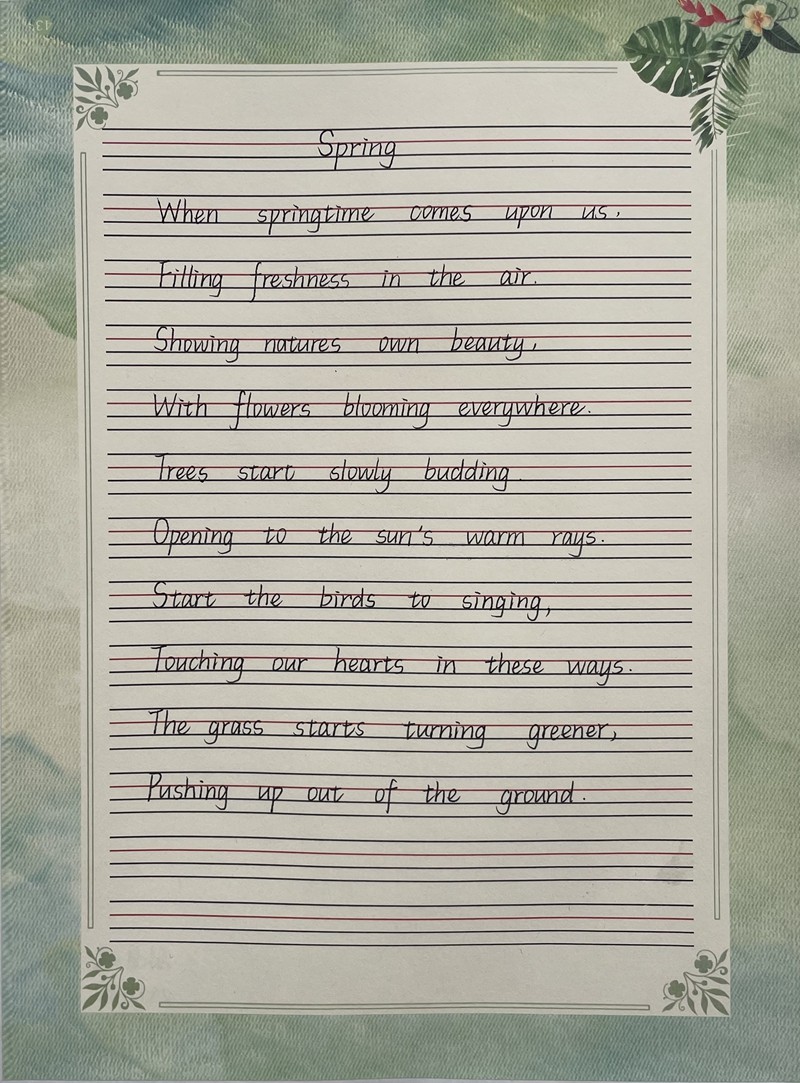 Spring
When springtime comes upon us,
Filling freshness in the air.
Showing natures own beauty,
With flowers blooming everywhere.
Trees start slowly budding.
Opening to the sun's warm rays.
Start the birds to singing,
Touching our hearts in these ways.
The grass starts turning greener,
Pushing up out of the ground.